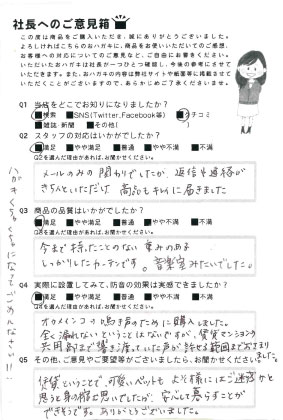 社長へのご意見箱
この度は商品をご購入いただき、誠にありがとうございました。
よろしければこちらのおハガキに、商品をお使いいただいてのご感想、
お客様への対応についてのご意見など、ご自由にお書きください。
いただいたおハガキは社長が一つひとつ確認し、今後の参考にさせて
いただきます。またおハガキの内容は弊社サイトや紙面等に掲載させて
いただくことがございますので、あらかじめご了承くださいませ。
Q1 当店をどこでお知りになりましたか?
検索 SNS(Twitter,Facebook等) クチコミ
雑誌・新聞 その他(
Q2 スタッフの対応はいかがでしたか?
満足 やや満足 普通 やや不満 不満
Q2を選んだ理由があれば、お聞かせください。
メールのみの関わりでしたが、返信や連絡が
きちんといただけ 商品もキレイに届きました
Q3 商品の品質はいかがでしたか?
満足 やや満足 普通 やや不満 不満
今まで持ったことのない重みのある
しっかりしたカーテンです。音楽室みたいでした。
Q4 実際に設置してみて、防音の効果は実感できましたか?
満足 やや満足 普通 やや不満 不満
オカメインコの鳴き声のために購入しました。
全く漏れないということはないですが、賃貸マンションの
共用部まで響き渡っていた声が許せる範囲までおさまり
ました。
Q5 その他、ご意見やご要望等がございましたら、お聞かせください。
賃貸ということで、可愛いペットも よそ様にはご迷惑かと
思うと身の縮む思いでしたが、安心して暮らすことが
できそうです。ありがとうございました。
ハガキくちゃくちゃになってごめんなさい!!